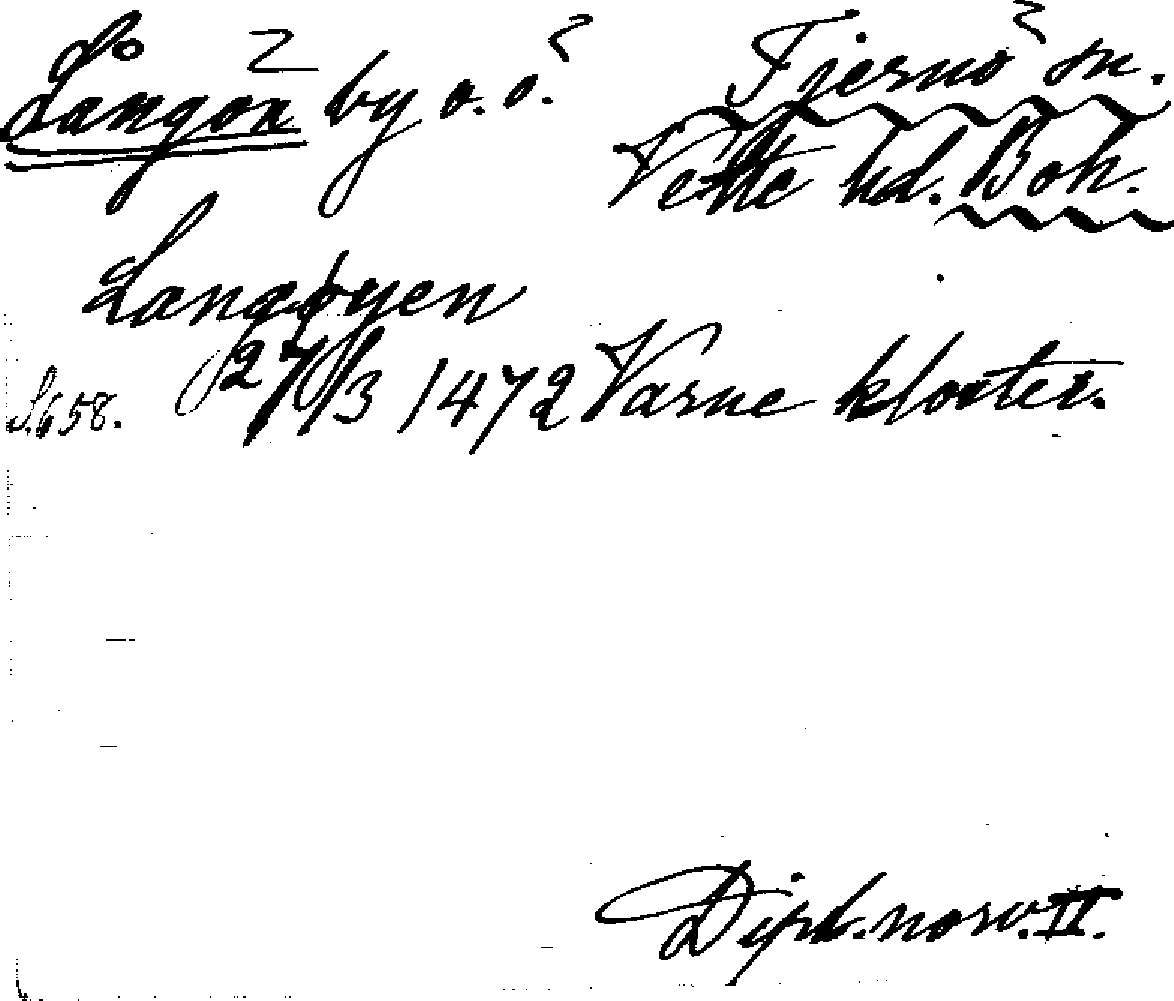 Lo
Långön by o. ö. Tjernö sn.
Vette hd. Boh.
Langøyen
S. 658. 27/3 1472 Varne kloster.
Dipl. norv. II.